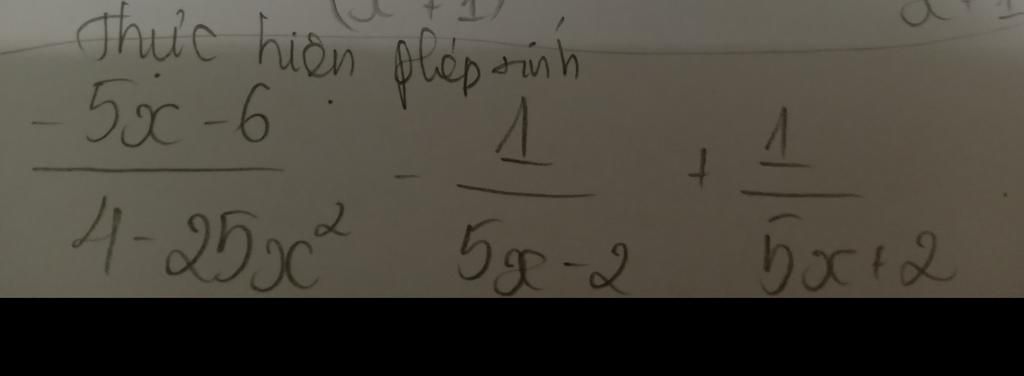 (x + 1)
x + 1
Thực hiện phép tính
\frac{-5x - 6}{4 - 25x^2} - \frac{1}{5x - 2} + \frac{1}{5x + 2}